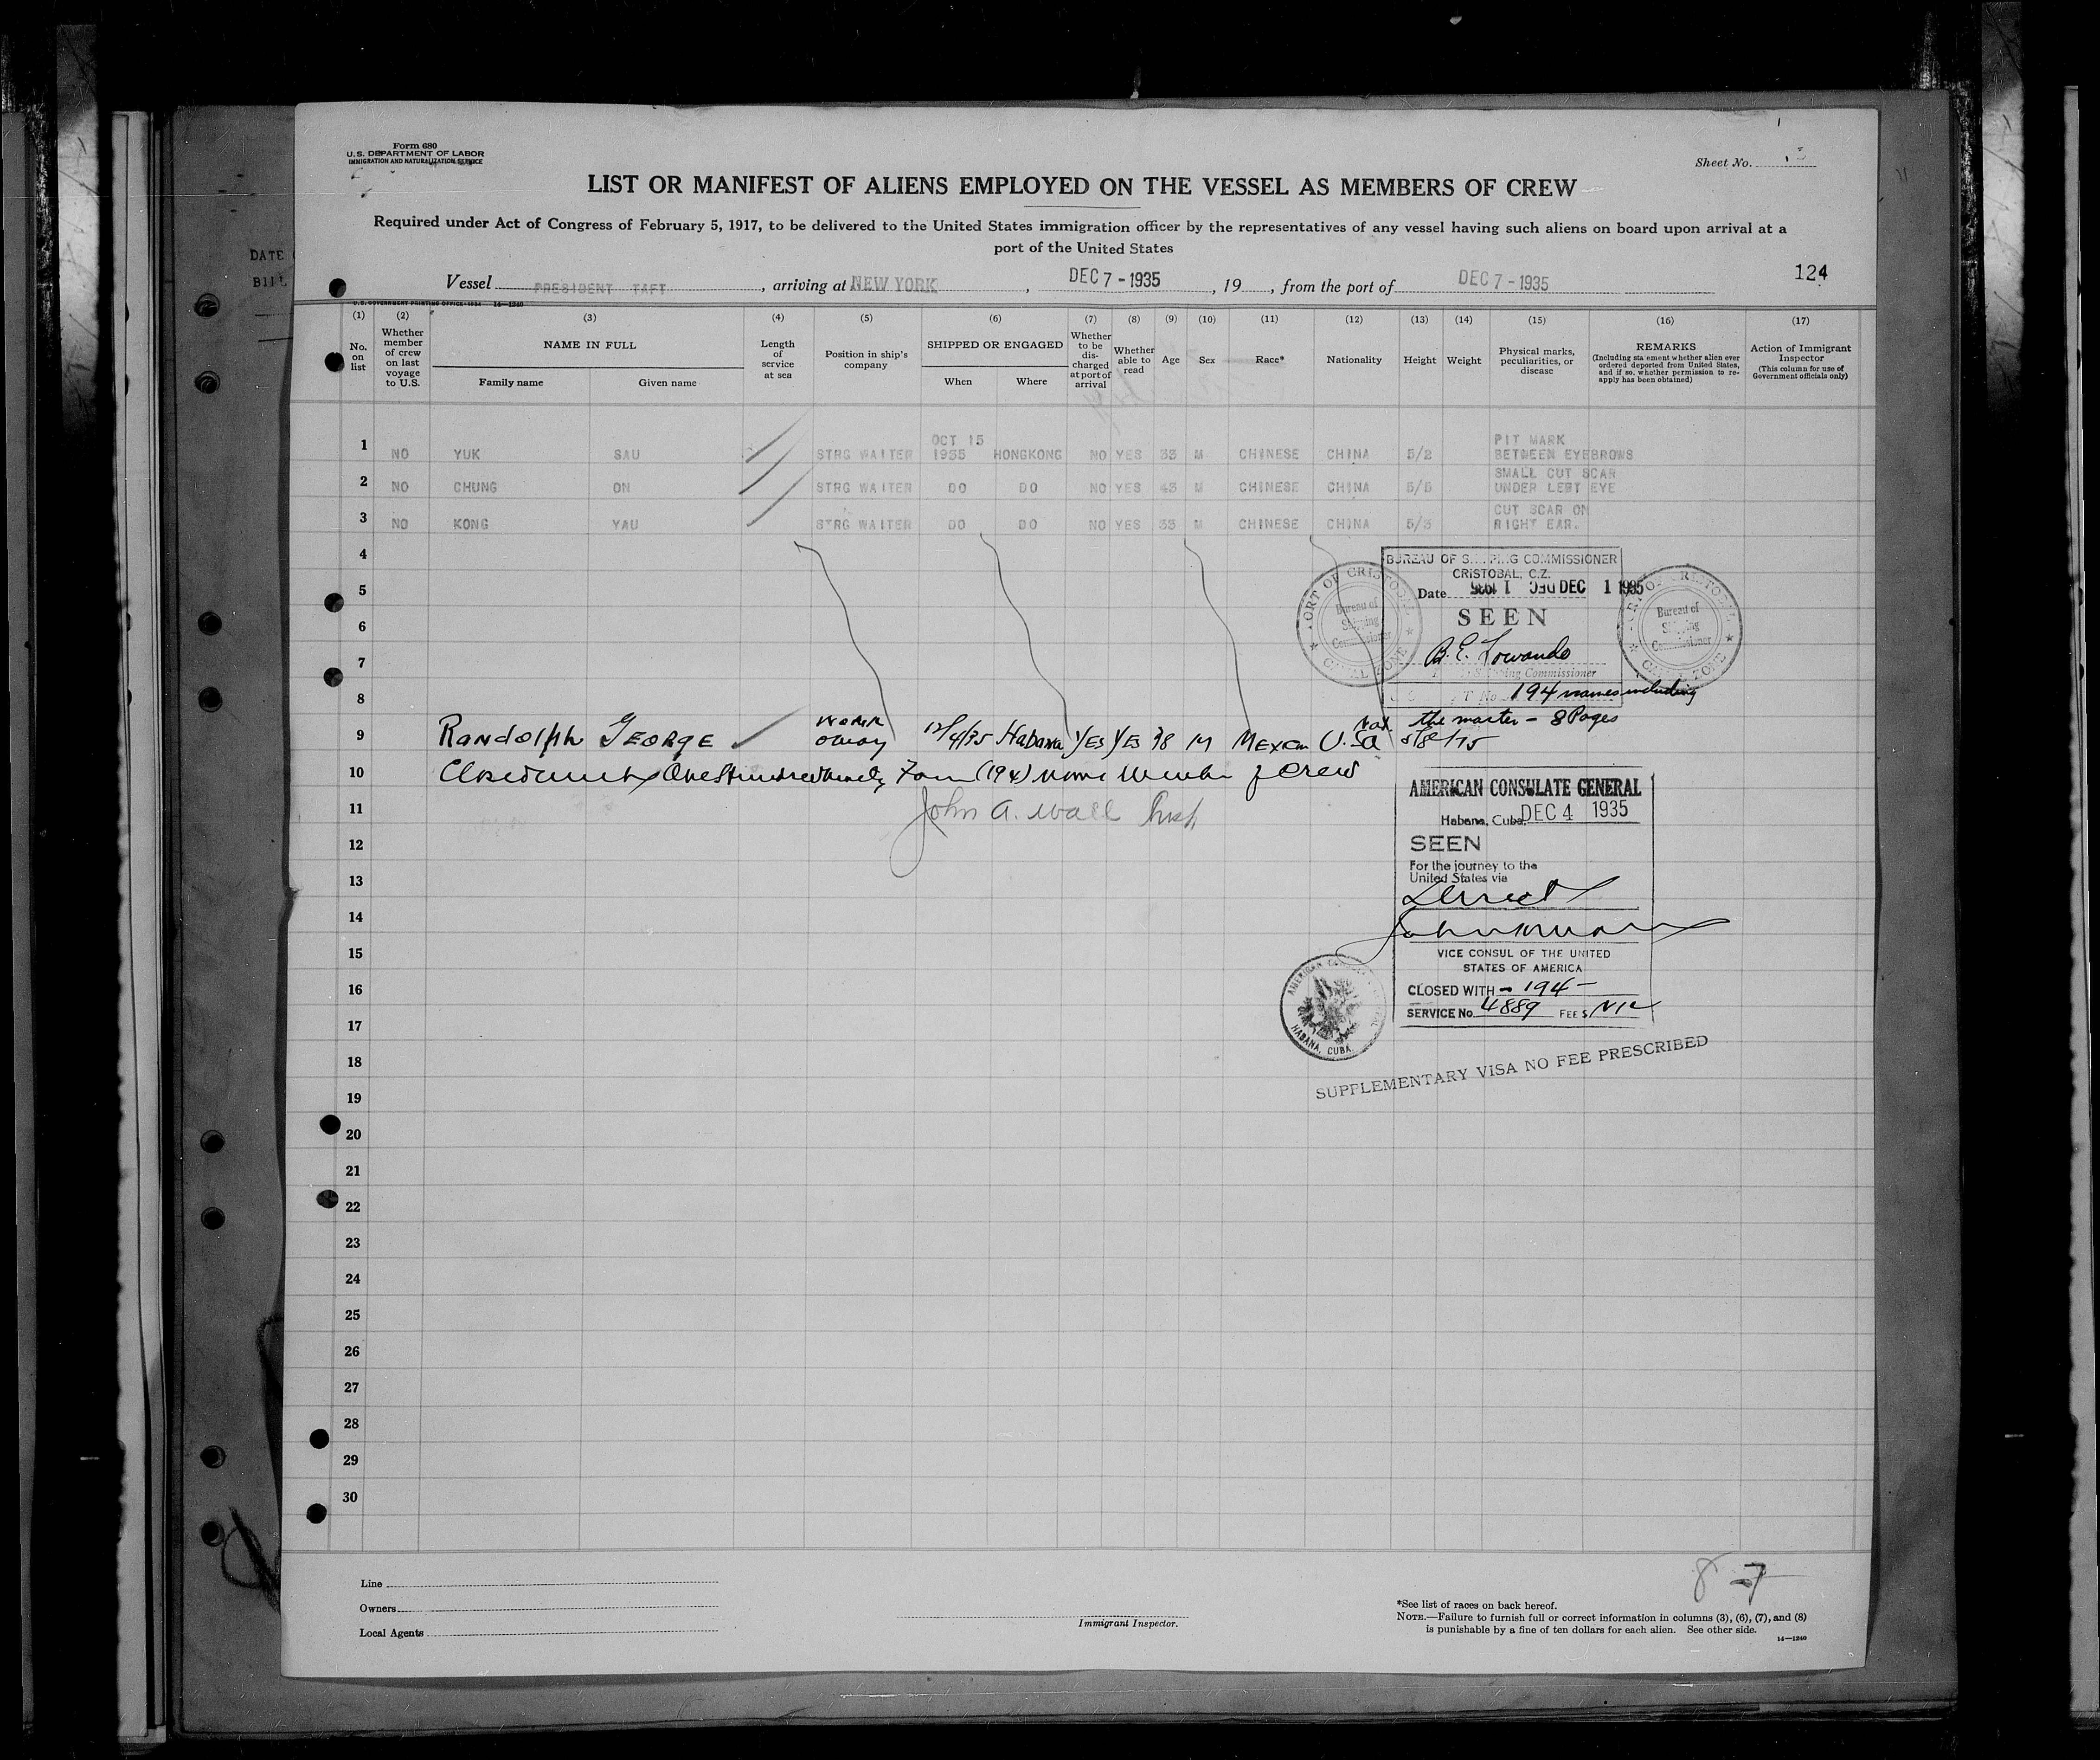 Form 680
U. S. DEPARTMENT OF LABOR
IMMIGRATION AND NATURALIZATION SERVICE
Sheet No.
LIST OR MANIFEST OF ALIENS EMPLOYED ON THE VESSEL AS MEMBERS OF CREW
Required under Act of Congress of February 5, 1917, to be delivered to the United States immigration officer by the representatives of any vessel having such aliens on board upon arrival at a
port of the United States
DATE
BILL
Vessel PRESIDENT TAFT, arriving at NEW YORK, DEC 7 - 1935, 19, from the port of DEC 7 - 1935
124
U. S. GOVERNMENT PRINTING OFFICE: 1934 14—1240
(1) (2) (3) (4) (5) (6) (7) (8) (9) (10) (11) (12) (13) (14) (15) (16) (17)
No. on list
Whether member of crew on last voyage to U.S.
NAME IN FULL
Family name Given name
Length of service at sea
Position in ship's company
SHIPPED OR ENGAGED
When Where
Whether to be discharged at port of arrival
Whether able to read
Age
Sex
Race*
Nationality
Height
Weight
Physical marks, peculiarities, or disease
REMARKS
(Including statement whether alien ever ordered deported from United States, and if so, whether permission to reapply has been obtained)
Action of Immigrant Inspector
(This column for use of Government officials only)
1 NO YUK SAU STRG WAITER OCT 15 1935 HONGKONG NO YES 33 M CHINESE CHINA 5/2 PIT MARK BETWEEN EYEBROWS
2 NO CHUNG ON STRG WAITER DO DO NO YES 43 M CHINESE CHINA 5/5 SMALL CUT SCAR UNDER LEFT EYE
3 NO KONG YAU STRG WAITER DO DO NO YES 33 M CHINESE CHINA 5/3 CUT SCAR ON RIGHT EAR.
4
5
6
7
8
BUREAU OF SHIPPING COMMISSIONER
CRISTOBAL, C.Z.
Date DEC 1 1935
SEEN
Shipping Commissioner
194 names including
the master - 8 Pages
PORT OF CRISTOBAL
Bureau of Shipping Commissioner
CANAL ZONE
PORT OF CRISTOBAL
Bureau of Shipping Commissioner
CANAL ZONE
9 Randolph GEORGE work away 12/4/35 Habana YES YES 38 M Mexican U.Sa
10 One Hundred Ninety Four (194) Member of Crew
11 John A. Wall
12
13
14
15
16
17
18
19
20
21
22
23
24
25
26
27
28
29
30
AMERICAN CONSULATE GENERAL
Habana, Cuba, DEC 4 1935
SEEN
For the journey to the
United States via
Direct
VICE CONSUL OF THE UNITED
STATES OF AMERICA
CLOSED WITH - 194 -
SERVICE No. 4889 FEE $ Nil
AMERICAN CONSULATE GENERAL
HABANA, CUBA.
SUPPLEMENTARY VISA NO FEE PRESCRIBED
8 - 7
Line
Owners
Local Agents
Immigrant Inspector.
*See list of races on back hereof.
NOTE.—Failure to furnish full or correct information in columns (3), (6), (7), and (8)
is punishable by a fine of ten dollars for each alien. See other side.
14—1240